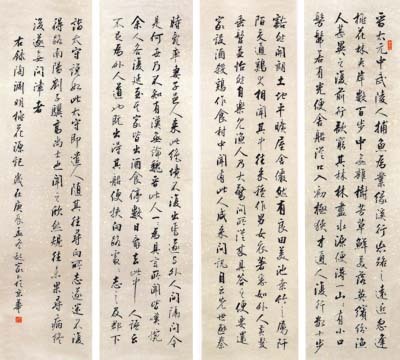 晉太元中武陵人捕魚為業緣溪行忘路之遠近忽逢
桃花林夾岸數百步中無雜樹芳草鮮美落英繽紛漁
人甚異之復前行欲窮其林林盡水源便得一山山有小口
髣髴若有光便舍船從口入初極狹才通人復行數十步
豁然開朗土地平曠屋舍儼然有良田美池桑竹之屬阡
陌交通雞犬相聞其中往來種作男女衣著悉如外人黃髮
垂髫並怡然自樂見漁人乃大驚問所從來具答之便要還
家設酒殺雞作食村中聞有此人咸來問訊自云先世避秦
時亂率妻子邑人來此絕境不復出焉遂與外人間隔問今
是何世乃不知有漢無論魏晉此人一一為具言所聞皆嘆惋
余人各復延至其家皆出酒食停數日辭去此中人語云
不足為外人道也既出得其船便扶向路處處志之及郡下
詣太守說如此太守即遣人隨其往尋向所志遂迷不復
得路南陽劉子驥高尚士也聞之欣然規往未果尋病終
後遂無問津者
右錄陶淵明桃花源記 歲在庚辰孟冬 於京華